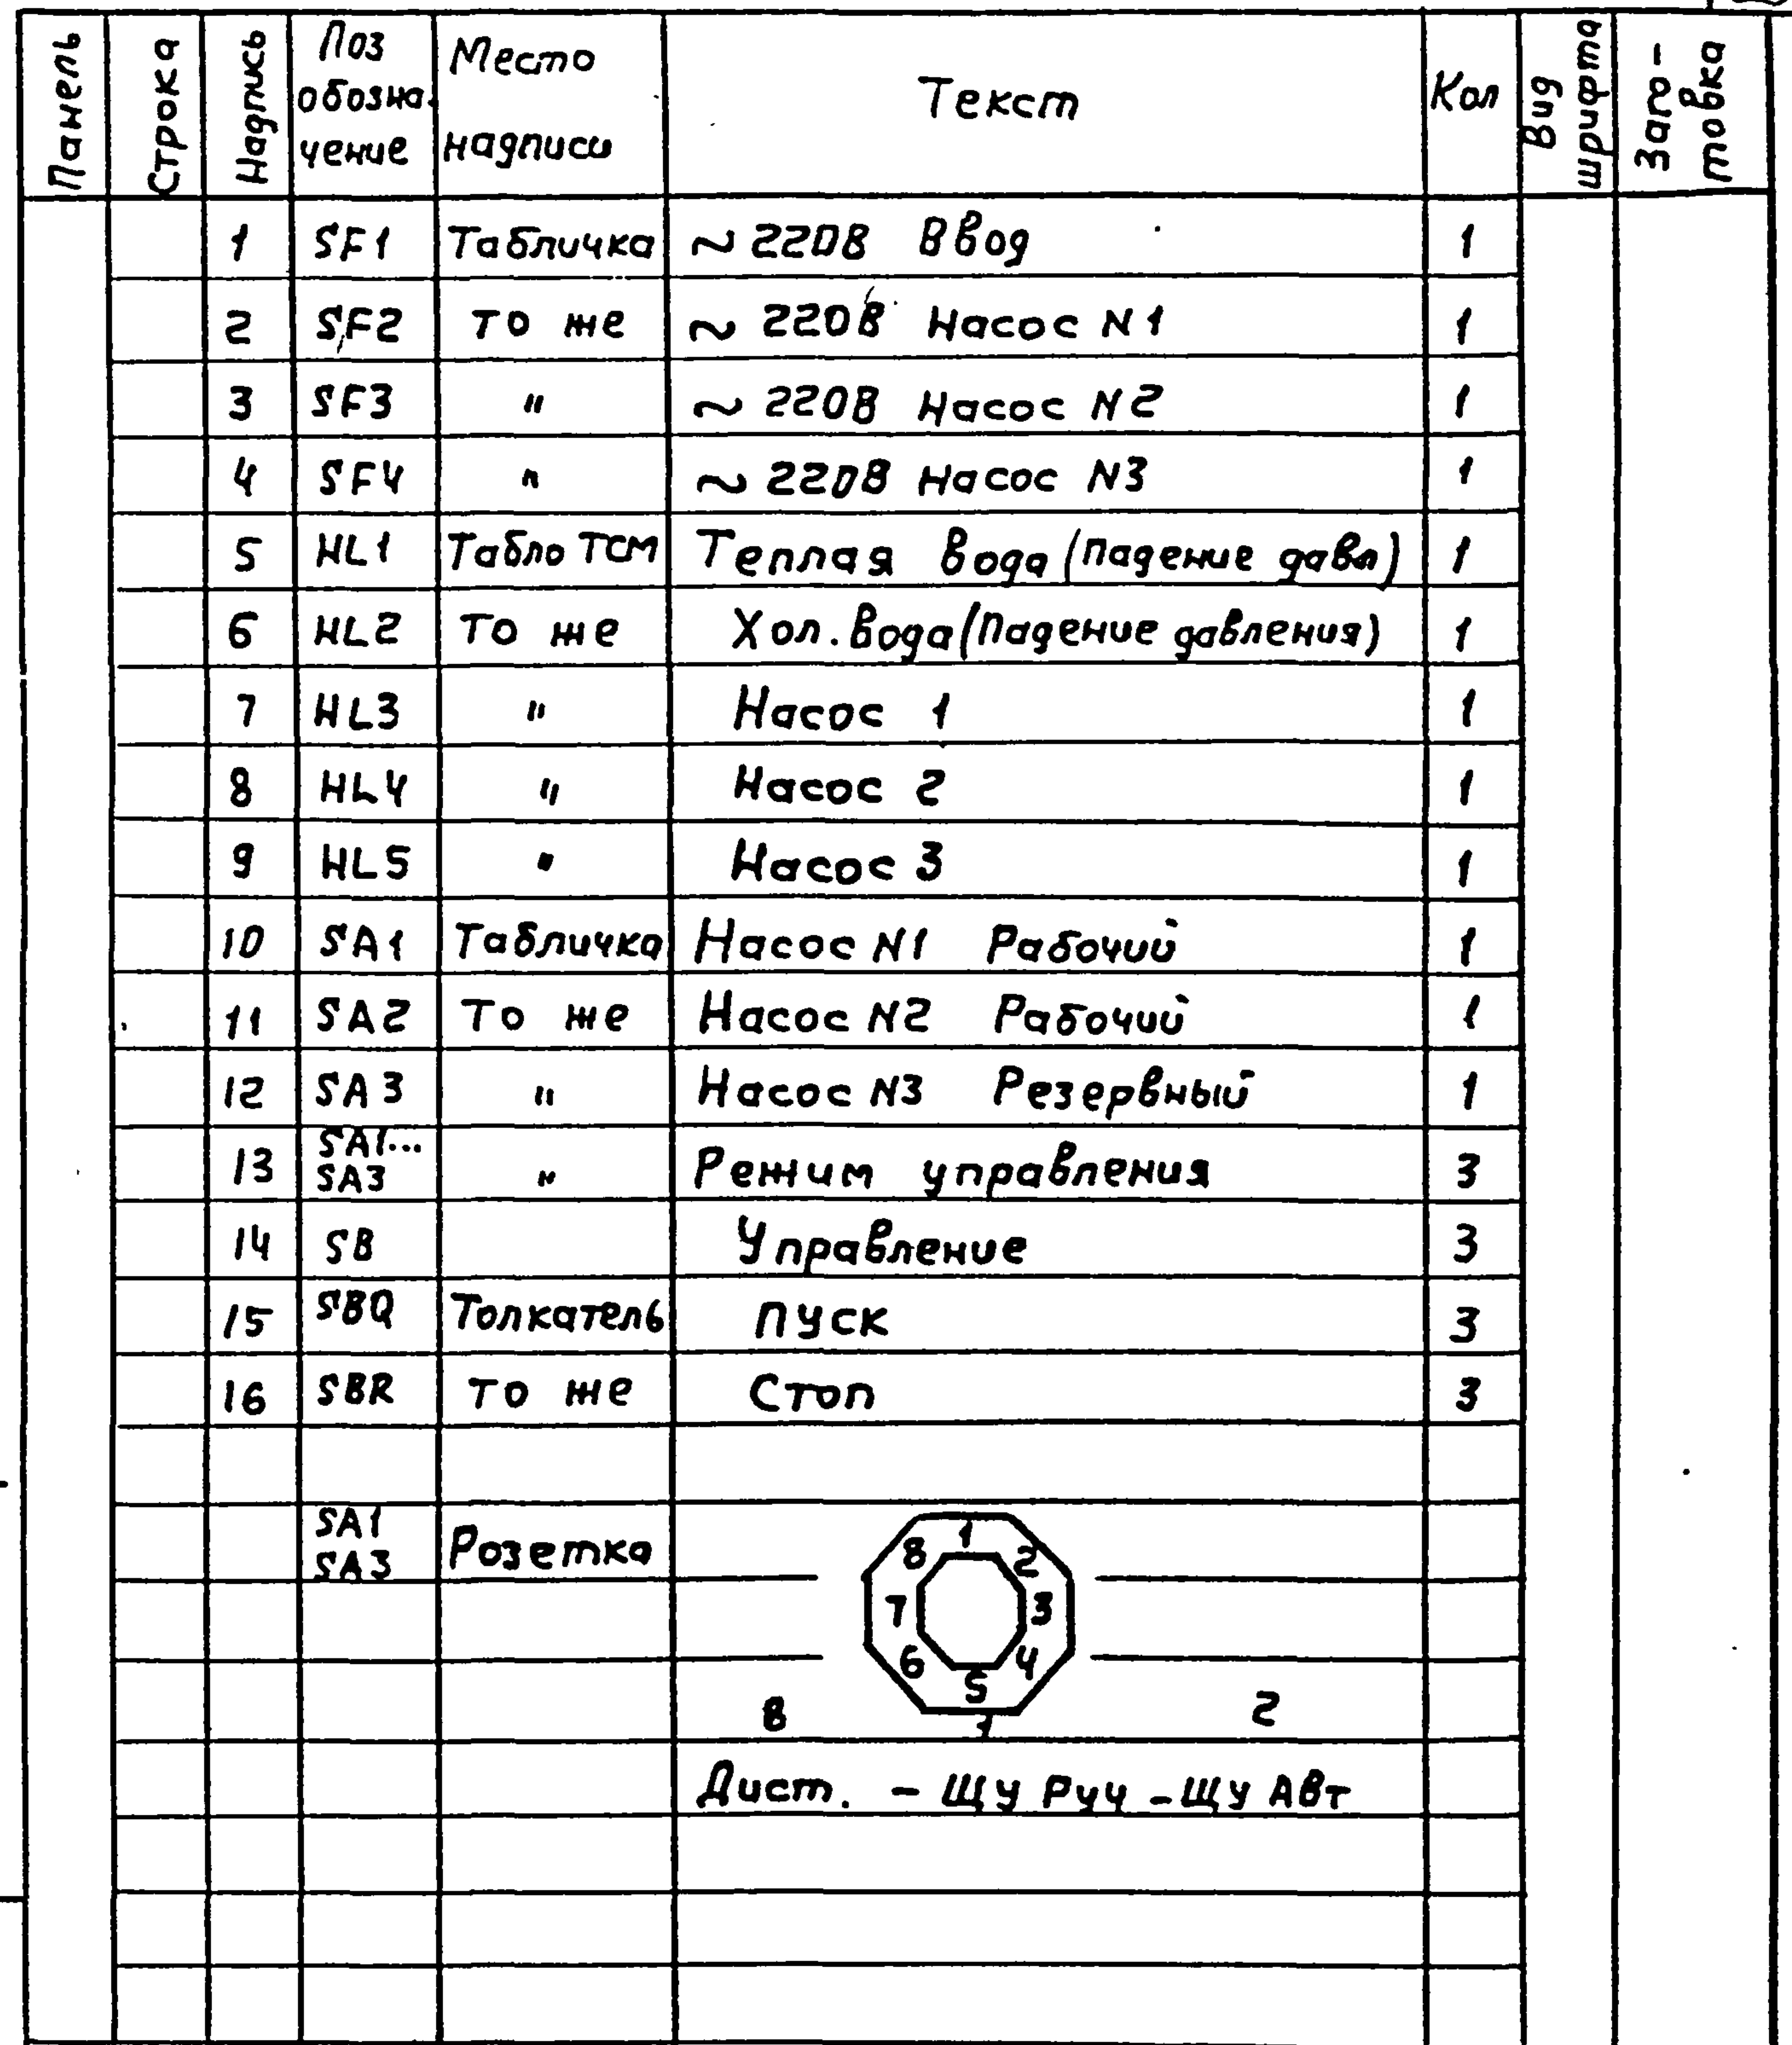 Панель Строка Надпись Поз обозначение Место надписи Текст Кол Вид шрифта Заготовка
1 SF1 Табличка ~ 220В Ввод 1
2 SF2 то же ~ 220В Насос N1 1
3 SF3 " ~ 220В Насос N2 1
4 SF4 " ~ 220В Насос N3 1
5 HL1 Табло ТСМ Теплая вода (падение давл) 1
6 HL2 то же Хол. вода (Падение давления) 1
7 HL3 " Насос 1 1
8 HL4 " Насос 2 1
9 HL5 " Насос 3 1
10 SA1 Табличка Насос N1 Рабочий 1
11 SA2 то же Насос N2 Рабочий 1
12 SA3 " Насос N3 Резервный 1
13 SA1... SA3 " Режим управления 3
14 SB Управление 3
15 SBQ Толкатель пуск 3
16 SBR то же Стоп 3
SA1 SA3 Розетка
1
8 2
7 3
6 4
5
8 1 2
Дист. - ЩУ Руч - ЩУ Авт